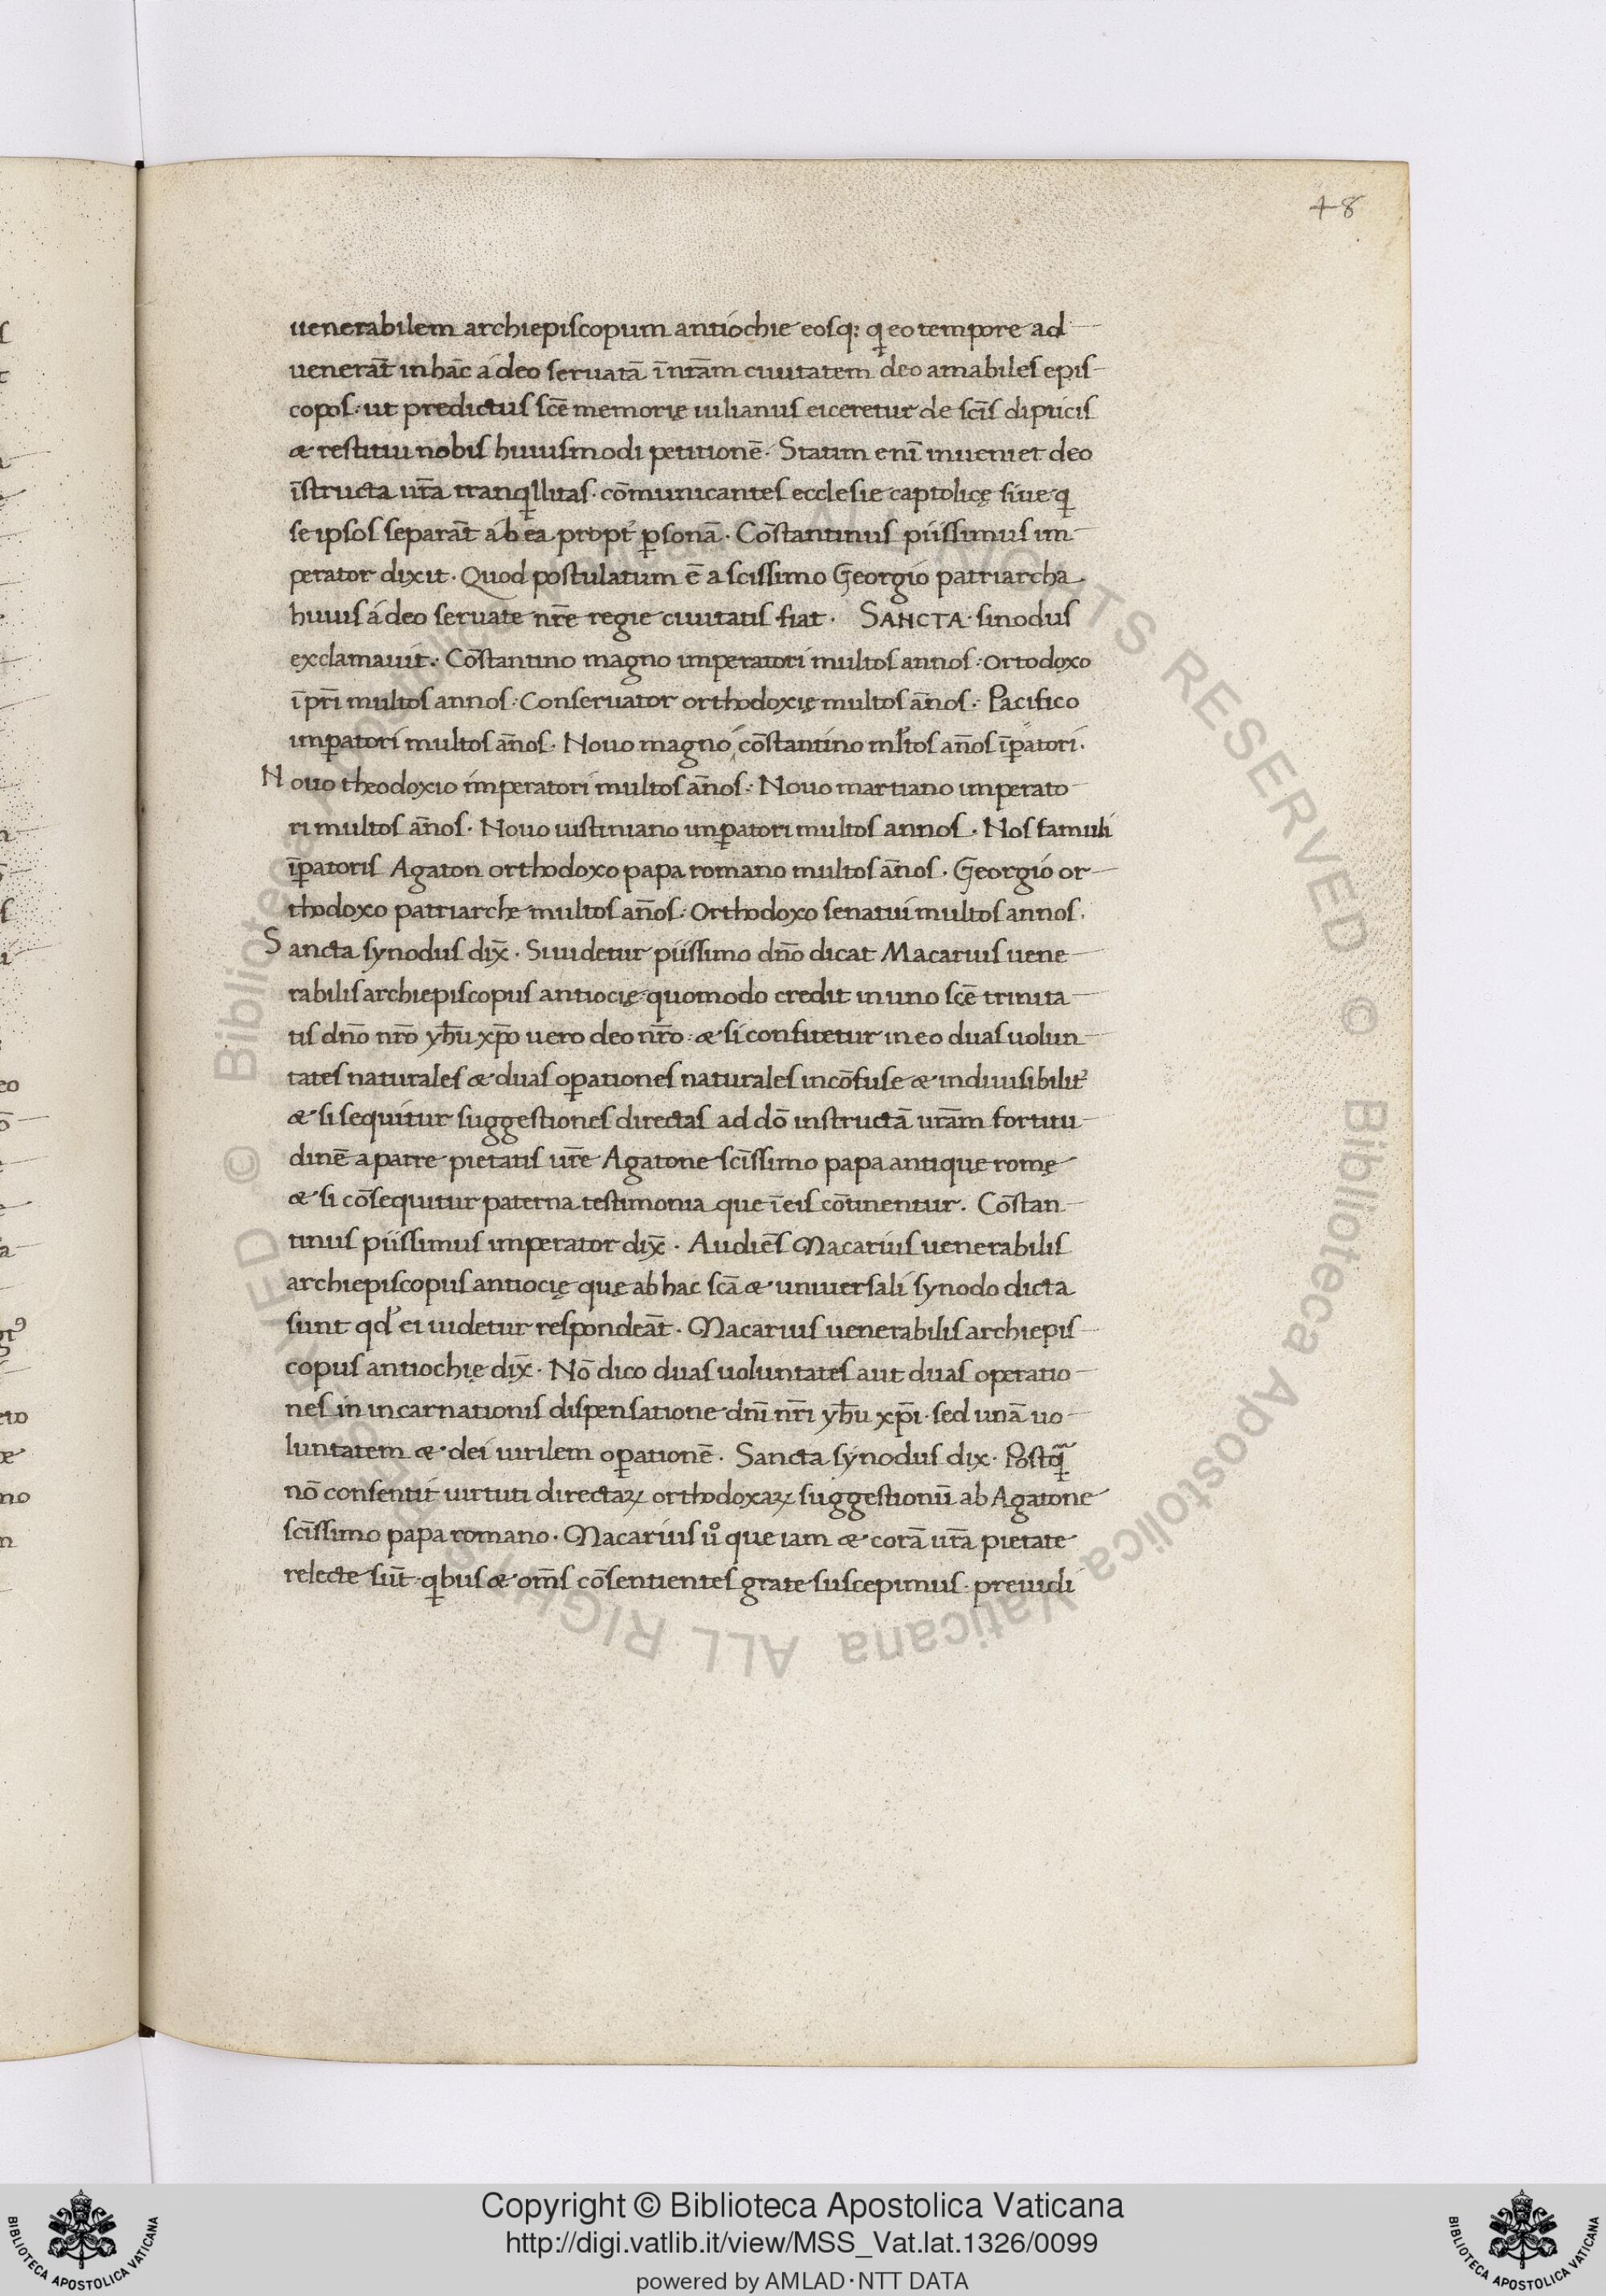 48
uenerabilem archiepiſcopum antiochie eoſq; qi eo tempore ad
uenerāt in hāc a deo ſeruatā ī nr̄am ciuitatem deo amabileſ epiſ
copoſ. ut predictuſ ſcē memorię iulianuſ eiceretur de ſcīſ dipticiſ
æ reſtitui nobiſ huiuſmodi petitionē. Statim enī inueniet deo
īſtructa ur̄a tranqillitaſ. cōmunicanteſ eccleſie captolicę ſiue qi
ſe ipſoſ ſeparāt ab ea propt̉ ꝑſonā. Cōſtantinuſ piiſſimuſ im
perator dixit. Quod poſtulatum ē a ſciſſimo Georgio patriarcha
huiuſ a deo ſeruate nr̄e regie ciuitatiſ fiat. SANCTA ſinoduſ
exclamauit. Cōſtantino magno imperatori multoſ annoſ: Ortodoxo
īpr̄i multoſ annoſ: Conſeruator orthodoxię multoſ an̄oſ: Pacifico
imꝑatori multoſ an̄oſ. Nouo magno cōſtantino ml̉toſ an̄oſ īꝑatori.
Nouo theodoxio imperatori multoſ an̄oſ: Nouo martiano imperato
ri multoſ an̄oſ. Nouo iuſtiniano imꝑatori multoſ annoſ. Noſ famuli
īꝑatoriſ Agaton orthodoxo papa romano multoſ an̄oſ. Georgio or
thodoxo patriarche multoſ an̄oſ: Orthodoxo ſenatui multoſ annoſ.
Sancta ſynoduſ dix̄. Si uidetur piiſſimo dn̄o dicat Macariuſ uene
rabiliſ archiepiſcopuſ antiocię quomodo credit in uno ſcē trinita
tiſ dn̄o nr̄o yh̄u xp̄o uero deo nr̄o. æ ſi confitetur in eo duaſ uolun
tateſ naturaleſ æ duaſ oꝑationeſ naturaleſ incōfuſe æ indiuiſibilit̉
æ ſi ſequitur ſuggeſtioneſ directaſ ad dō inſtructā ur̄am fortitu
dinē a patre pietatiſ ur̄e Agatone ſcīſſimo papa antique romę
æ ſi cōſequitur paterna teſtimonia que ī eiſ cōtinentur. Cōſtan
tinuſ piiſſimuſ imperator dix̄. Audiēſ Macariuſ uenerabiliſ
archiepiſcopuſ antiocię quę ab hac ſcā æ uniuerſali ſynodo dicta
ſunt qd̉ ei uidetur reſpondeāt. Macariuſ uenerabiliſ archiepiſ
copuſ antiochię dix̄. Nō dico duaſ uoluntateſ aut duaſ operatio
neſ in incarnationiſ diſpenſatione dn̄i nr̄i yh̄u xp̄i. ſed unā uo
luntatem æ dei uirilem oꝑationē. Sancta ſynoduſ dix. Poſtq̄
nō conſentit uirtuti directaꝝ orthodoxaꝝ ſuggeſtionū ab Agatone
ſcīſſimo papa romano. Macariuſ uo que iam æ corā ur̄a pietate
relecte ſūt. qibuſ æ om̄ſ cōſentienteſ grate ſuſcepimuſ. preuidi
Copyright © Biblioteca Apostolica Vaticana
http://digi.vatlib.it/view/MSS_Vat.lat.1326/0099
powered by AMLAD·NTT DATA